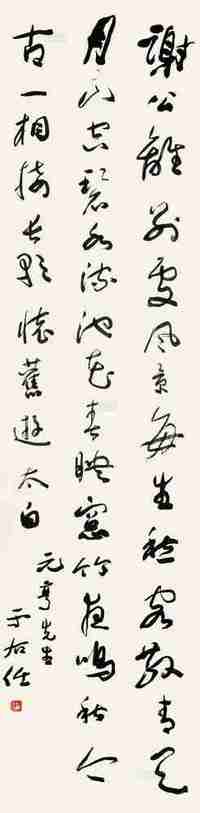 謝公離別處風景每生愁客散青天
月山空碧水流池花春映窗竹夜鳴秋今
古一相接長歌懷舊遊太白
元亨先生
于右任